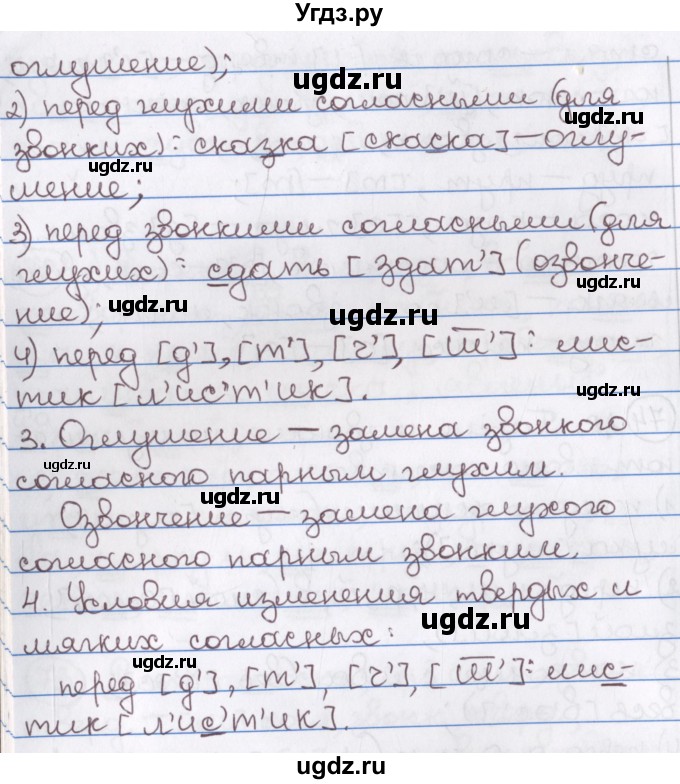 Угдз.ру
оглушение);
ugdz.ru
2) перед глухими согласными (для
ugdz.ru
звонких): сказка [скаска] – оглу-
ugdz.ru
шение;
3) перед звонкими согласными (для
ugdz.ru
глухих): сдать [здат'] (озвонче-
ugdz.ru
ние);
ugdz.ru
ugdz.ru
4) перед [д'], [т'], [ч'], [ш̅']: лис-
ugdz.ru
тик [л'ис'т'ик].
3. Оглушение – замена звонкого
ugdz.ru
согласного парным глухим.
ugdz.ru
Озвончение – замена глухого
согласного парным звонким.
ugdz.ru
4. Условия изменения твердых и
ugdz.ru
мягких согласных:
ugdz.ru
перед [д'], [т'], [ч'], [ш̅']: лис-
тик [л'ис'т'ик].
ugdz.ru
ugdz.ru